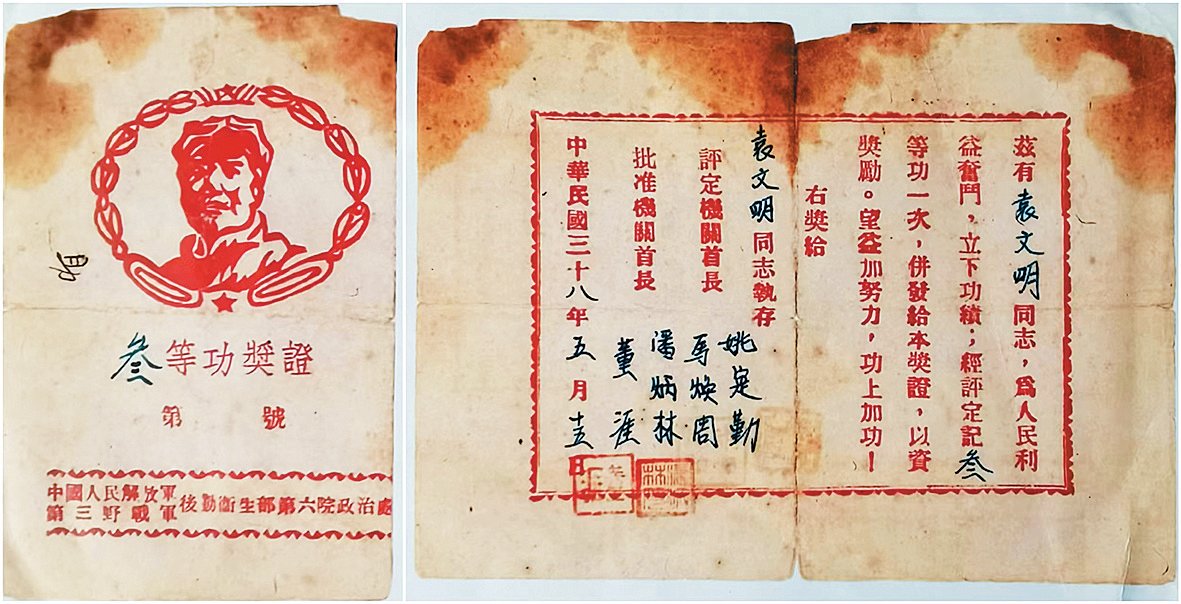 叁等功獎證
第　號
中國人民解放軍
第三野戰軍
後勤衛生部第六院政治處
茲有袁文明同志，爲人民利
益奮鬥，立下功績；經評定記叁
等功一次，併發給本獎證，以資
獎勵。望益加努力，功上加功！
右獎給
袁文明同志執存
評定機關首長 姚定勤 馬煥周
批准機關首長 潘炳林 董涯
中華民國三十八年五月十五日